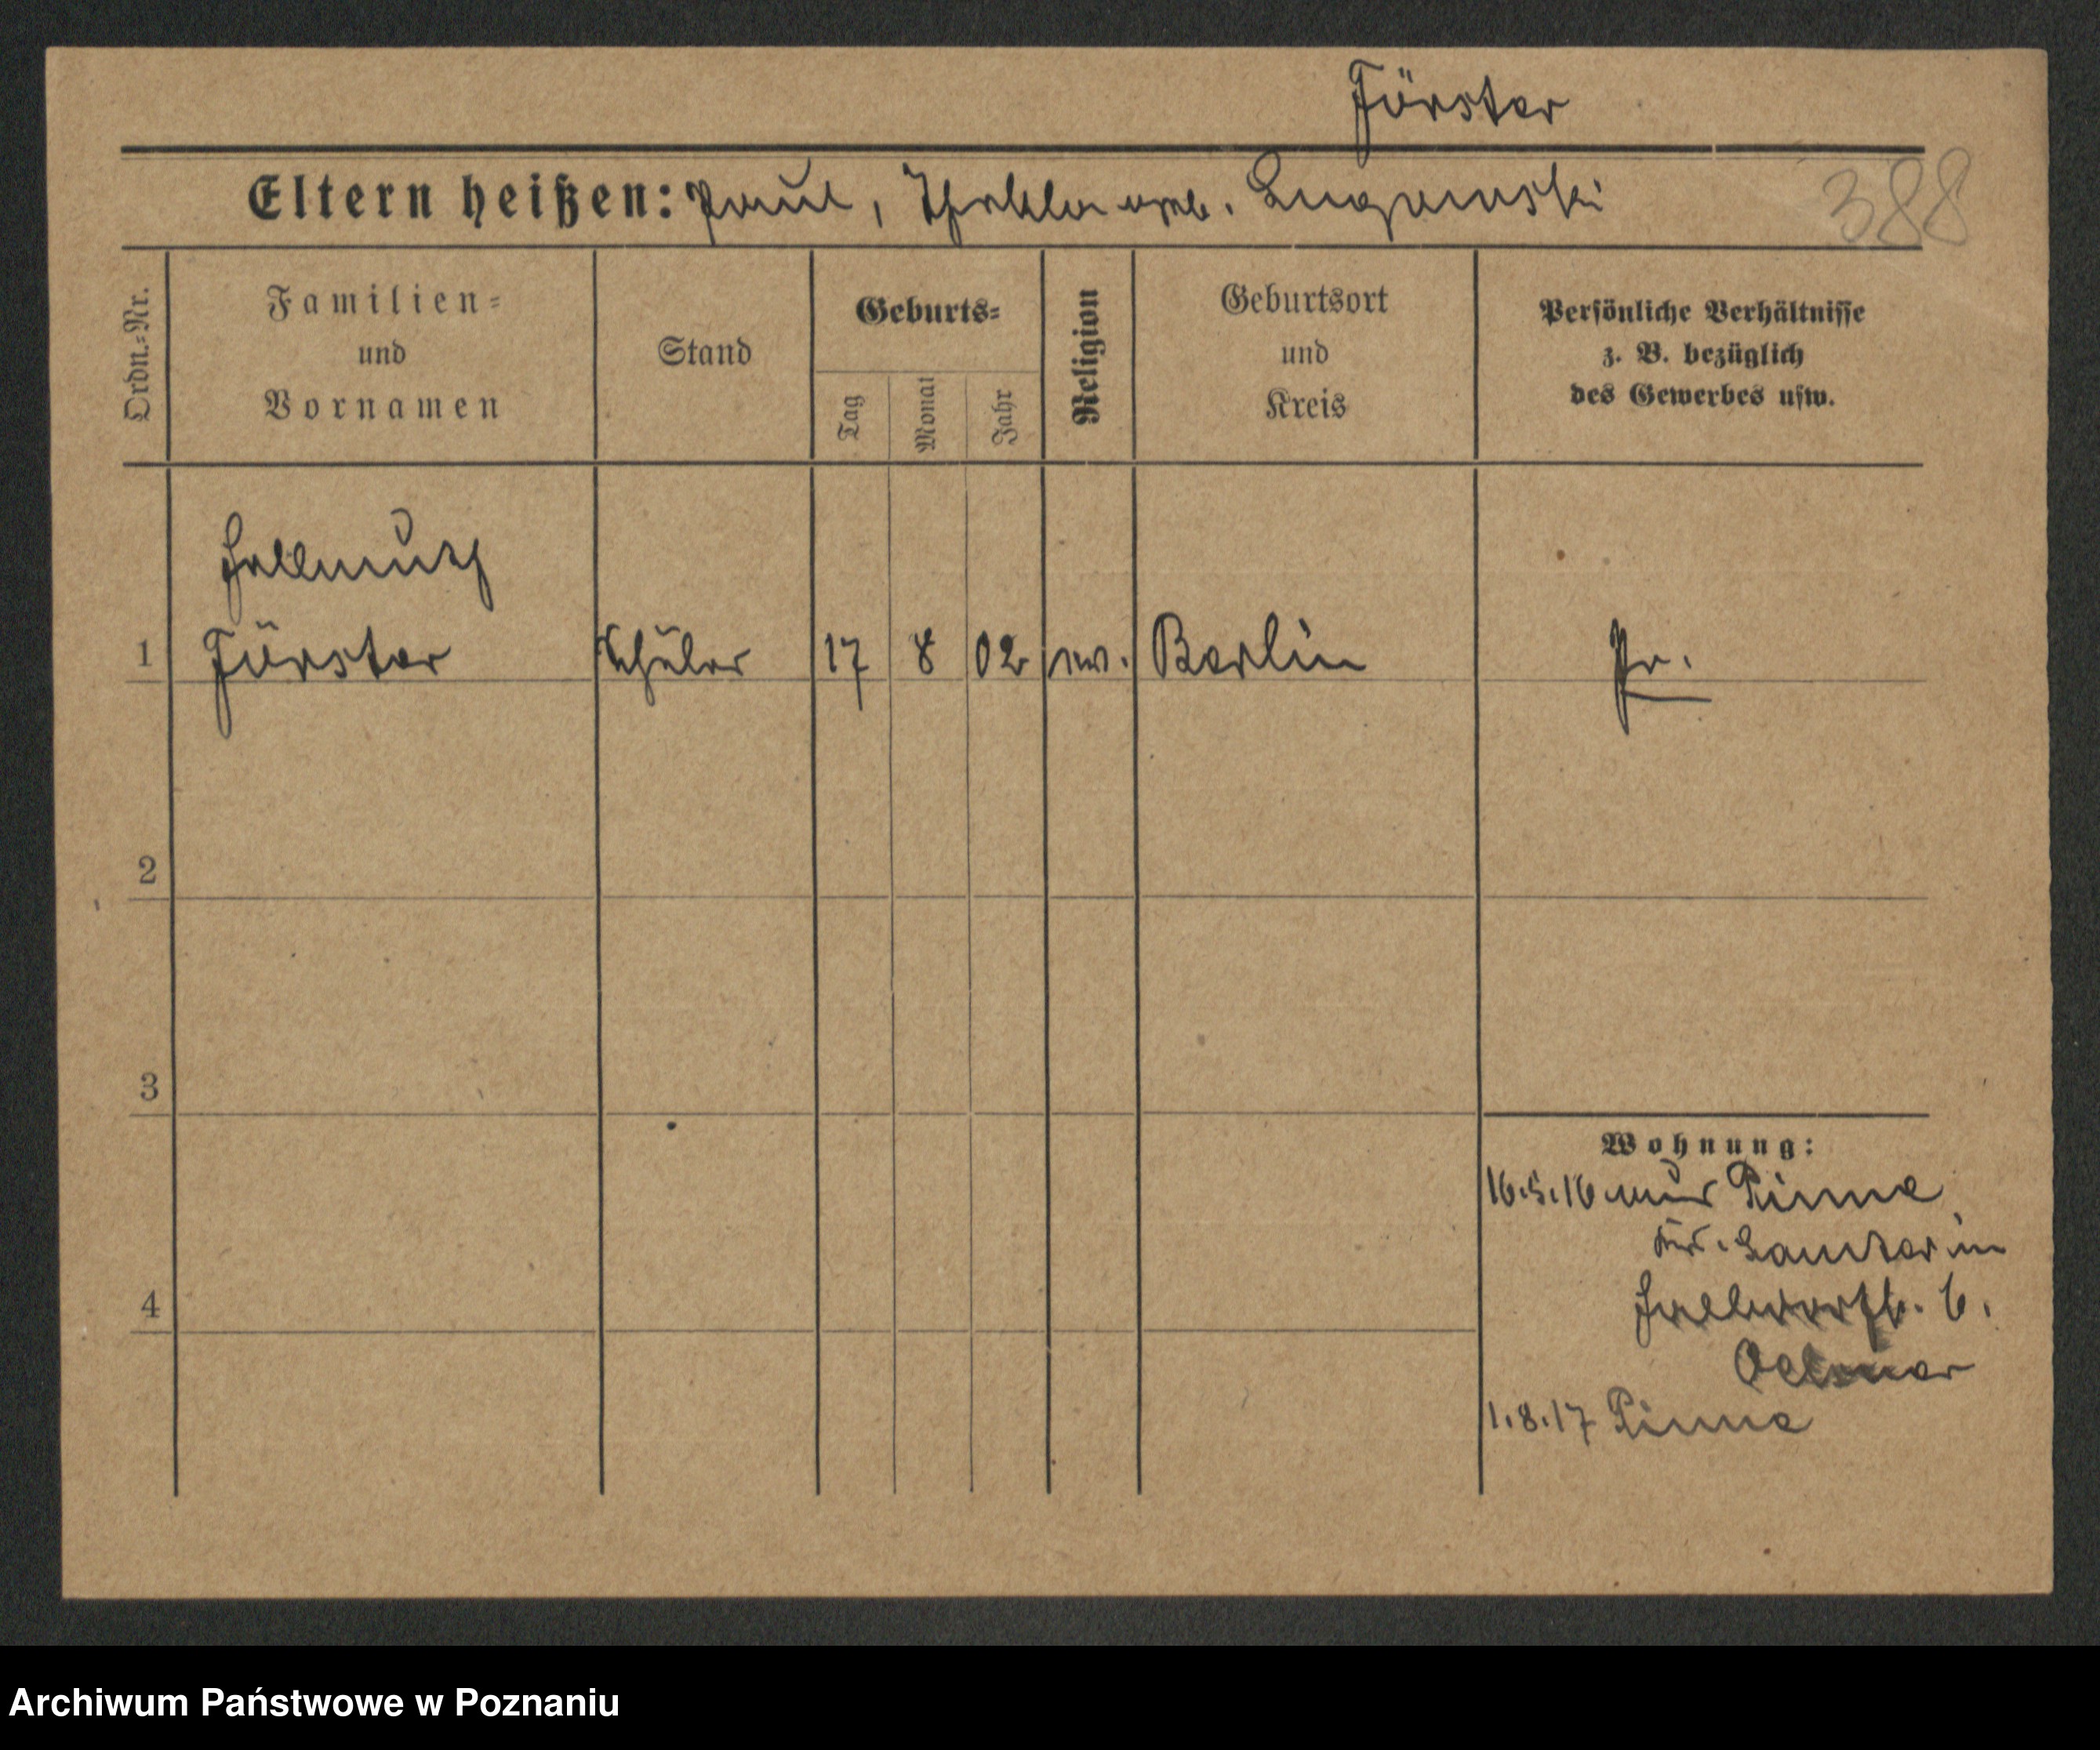 Förster
Eltern heißen: Paul, Thekla geb. Luganski
388
Ordn.=Nr.
Familien=
und
Vornamen
Stand
Geburts=
Tag
Monat
Jahr
Religion
Geburtsort
und
Kreis
Persönliche Verhältnisse
z. B. bezüglich
des Gewerbes usw.
Hellmuth
1 Förster Schüler 17 8 02 ev. Berlin Pr.
2
3
4
Wohnung:
16.5.16 aus Pinne
Kr. Samter in
6.
1.8.17 Pinne
Archiwum Państwowe w Poznaniu